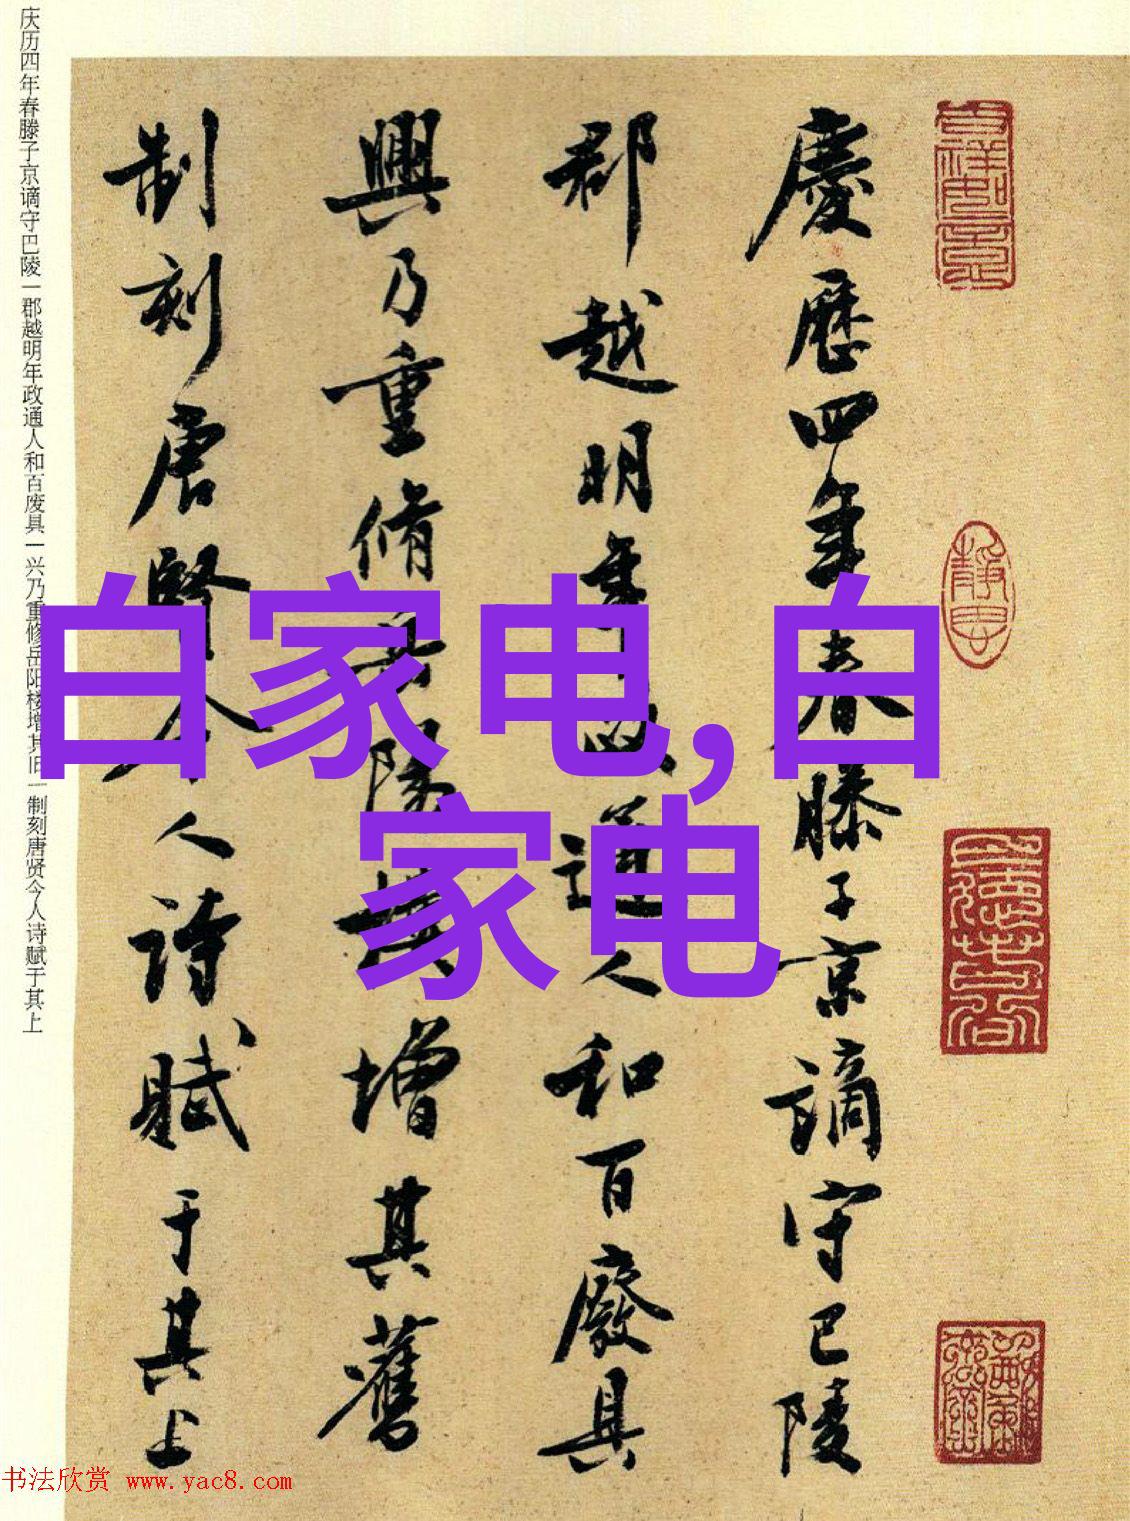 慶歷四年春滕子京謫守巴陵
郡越明年政通人和百廢具
興乃重脩岳陽樓增其舊
制刻唐賢今人詩賦于其上
庆历四年春滕子京谪守巴陵一郡越明年政通人和百废具一兴乃重修岳阳楼增其旧一制刻唐贤今人诗赋于其上
白家电,白
家电
书法欣赏 www.yac8.com